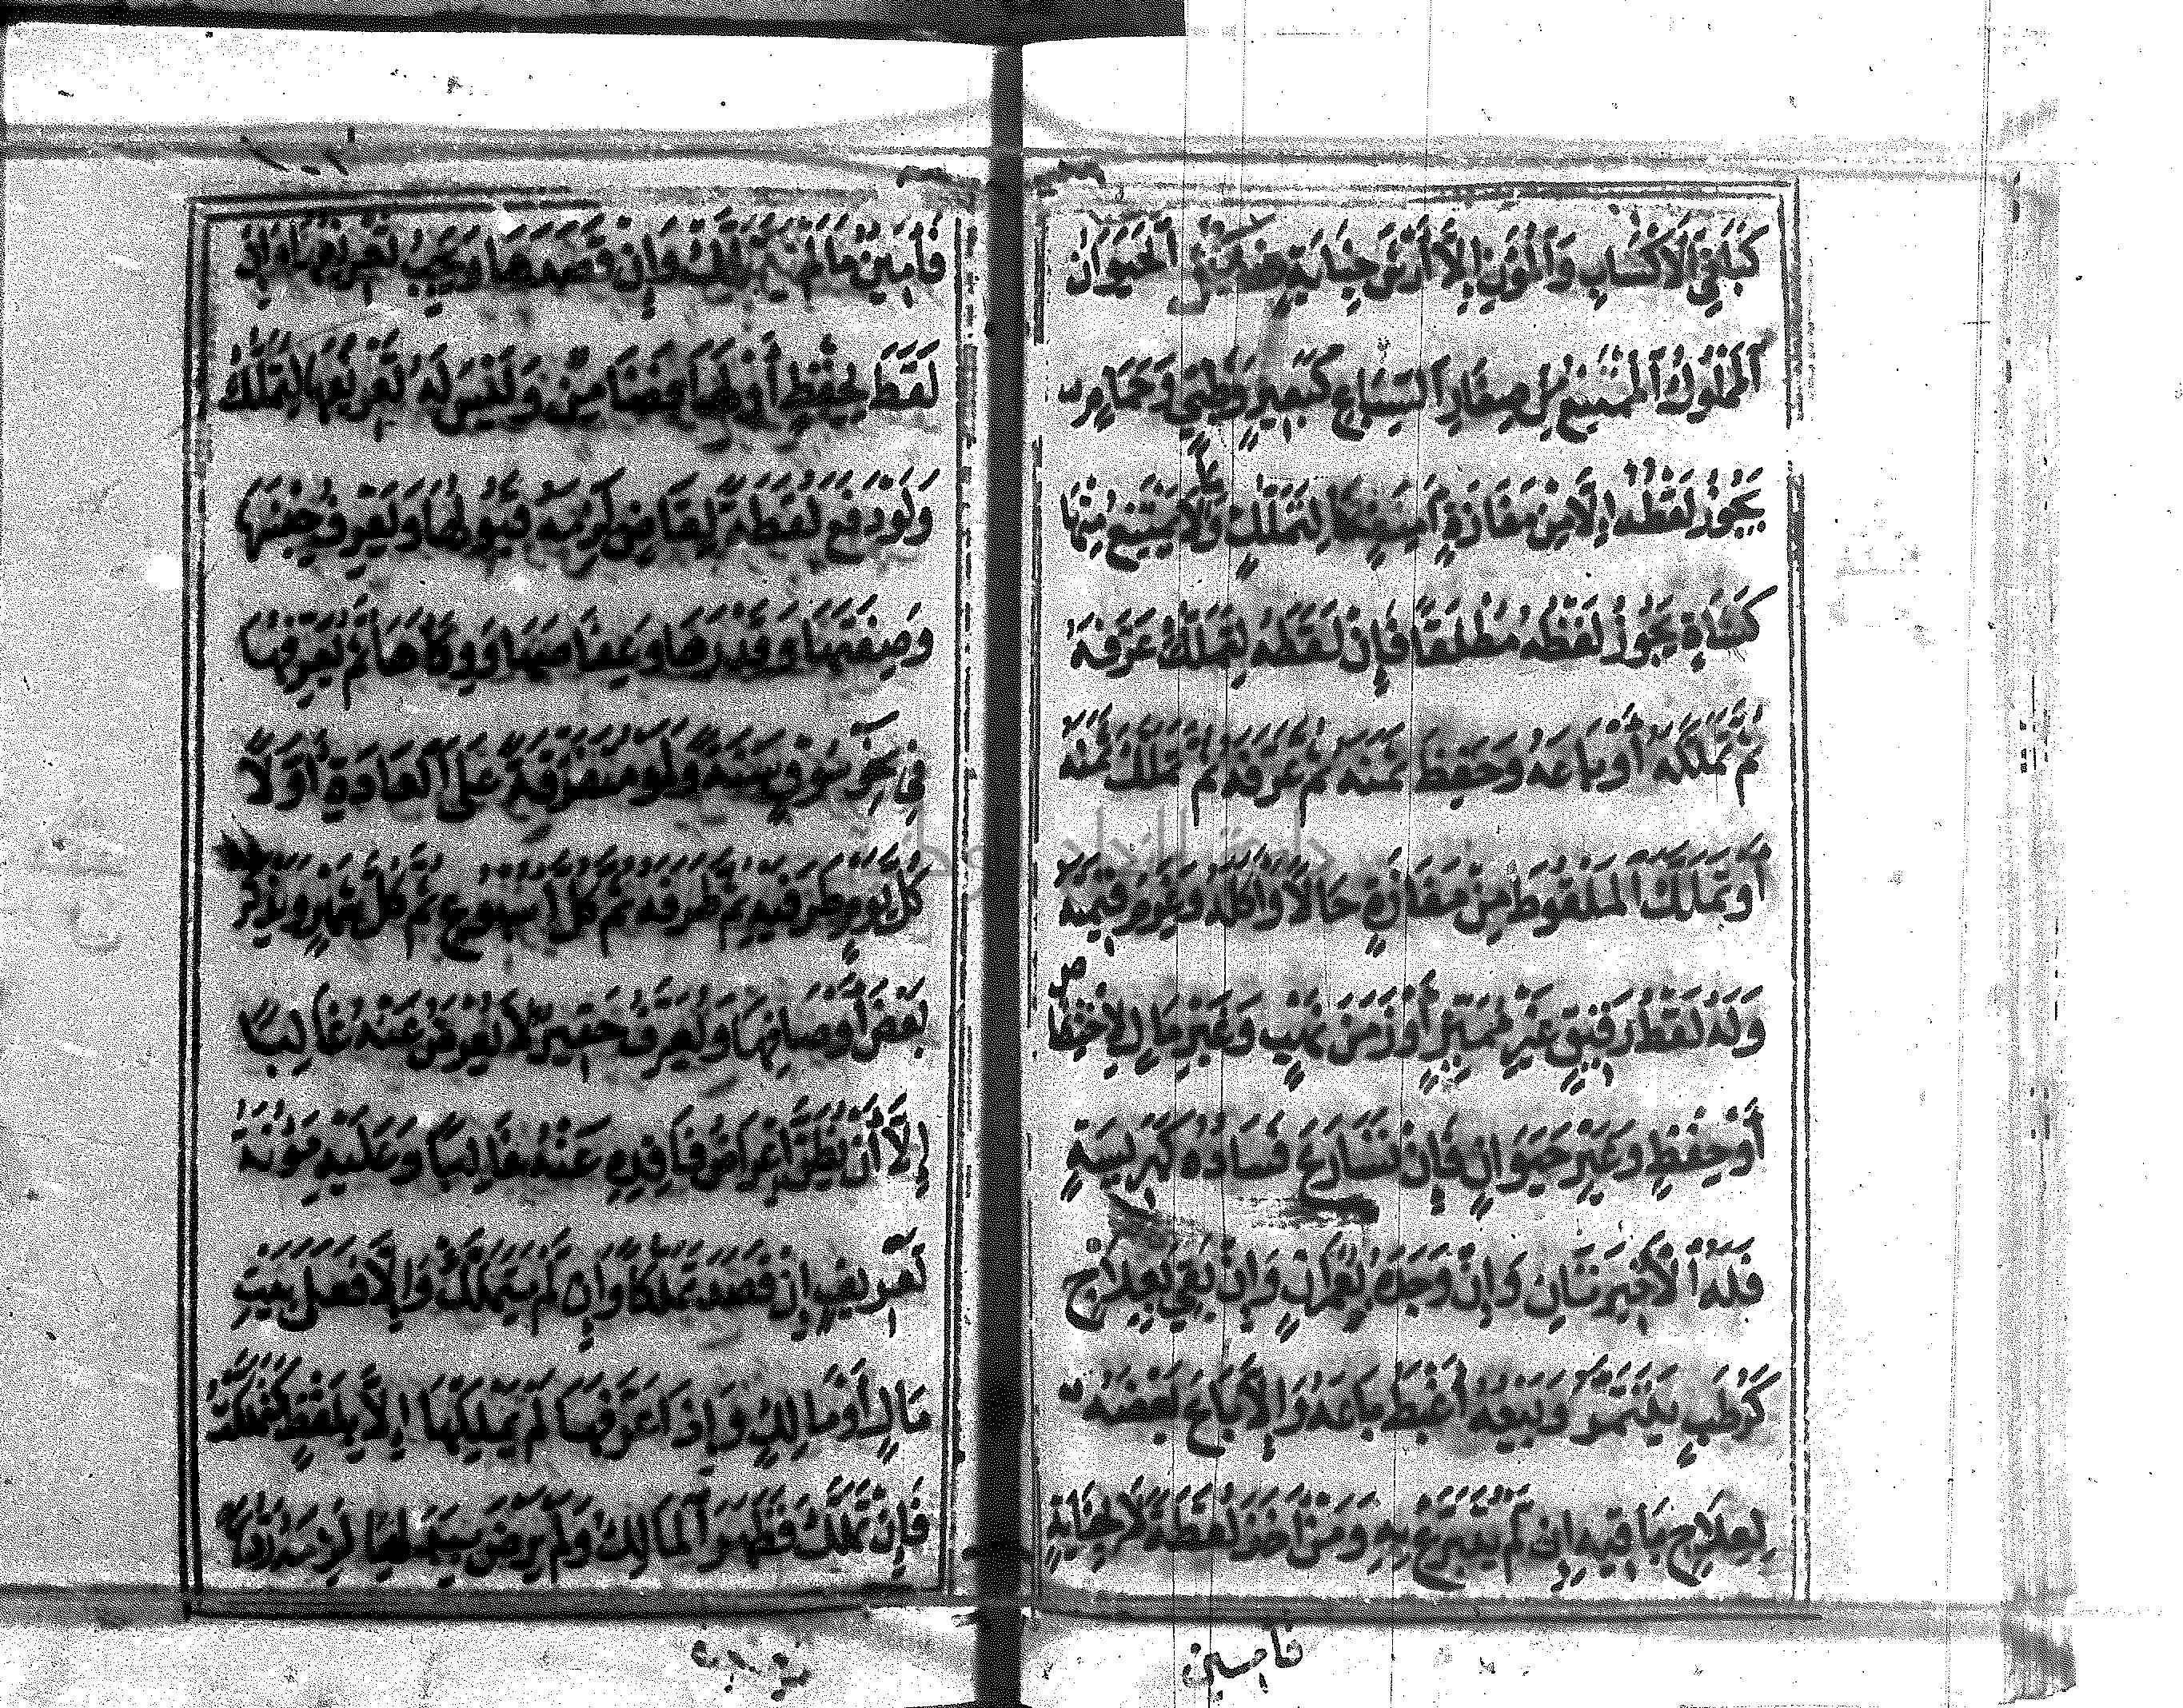 كَبَاقِي الْأَكْسَابِ وَالْمُؤَنِ إِلَّا أَرْشَ جِنَايَةٍ فصل الْحَيَوَانُ
الْمَمْلُوكُ الْمُمْتَنِعُ مِنْ صِغَارِ السِّبَاعِ كَبَعِيرٍ وَظَبْيٍ وَحَمَامٍ
يَجُوزُ لَقْطُهُ إِلَّا مِنْ مَفَازَةِ آمِنَةٍ لِتَمَلُّكٍ وَمَا لَا يَمْتَنِعُ مِنْهَا
كَشَاةٍ يَجُوزُ لَقْطُهُ مُطْلَقًا فَإِنْ لَقَطَهُ لِتَمَلُّكٍ عَرَّفَهُ
ثُمَّ تَمَلَّكَهُ أَوْ بَاعَهُ وَحَفِظَ ثَمَنَهُ ثُمَّ عَرَّفَهُ ثُمَّ تَمَلَّكَ ثَمَنَهُ
أَوْ تَمَلَّكَ الْمَلْقُوطَ مِنْ مَفَازَةٍ حَالًا وَأَكَلَهُ وَغَرِمَ قِيمَتَهُ
وَلَهُ لَقْطُ رَقِيقٍ غَيْرِ مُمَيِّزٍ أَوْ زَمَنَ نَهْبٍ وَغَيْرِ مَالٍ لِاخْتِصَاصٍ
أَوْ حِفْظٍ وَغَيْرِ حَيَوَانٍ فَإِنْ تَسَارَعَ فَسَادُهُ كَهَرِيسَةٍ
فَلَهُ الْأَخِيرَتَانِ وَإِنْ وَجَدَهُ بِعُمْرَانٍ وَإِنْ بَقِيَ بِعِلَاجٍ
كَرُطَبٍ يَتَتَمَّرُ وَبَيْعُهُ أَغْبَطُ بَاعَهُ وَإِلَّا بَاعَ بَعْضَهُ
لِعِلَاجِ بَاقِيهِ إِنْ لَمْ يَتَبَرَّعْ بِهِ وَمَنْ أَخَذَ لُقَطَةً لَا لِخِيَانَةٍ
فأمين
فَأَمِينٌ مَا لَمْ يَتَمَلَّكْ وَإِنْ قَصَدَهَا وَيَجِبُ تَعْرِيفُهَا وَإِنْ
لَقَطَ لِحِفْظٍ أَوْ لَهَا فَضَامِنٌ وَلَيْسَ لَهُ تَعْرِيفُهَا لِتَمَلُّكٍ
وَلَوْ دَفَعَ لُقَطَةً لِقَاضٍ لَزِمَهُ قَبُولُهَا وَيَعْرِفُ جِنْسَهَا
وَصِفَتَهَا وَقَدْرَهَا وَعِفَاصَهَا وَوِكَاءَهَا ثُمَّ يُعَرِّفُهَا
فِي نَحْوِ سُوقٍ سَنَةً وَلَوْ مُتَفَرِّقَةً عَلَى الْعَادَةِ أَوَّلًا
كُلَّ يَوْمٍ طَرَفَيْهِ ثُمَّ طَرَفَهُ ثُمَّ كُلَّ أُسْبُوعٍ ثُمَّ كُلَّ شَهْرٍ وَيَذْكُرُ
بَعْضَ أَوْصَافِهَا وَيُعَرِّفُ حَقِيرٌ لَا يُعْرَضُ عَنْهُ غَالِبًا
إِلَى أَنْ يَظُنَّ إِعْرَاضَ فَاقِدِهِ عَنْهُ غَالِبًا وَعَلَيْهِ مَؤُونَةُ
تَعْرِيفٍ إِنْ قَصَدَ تَمَلُّكًا وَإِنْ لَمْ يَتَمَلَّكْ وَإِلَّا فَعَلَى بَيْتِ
مَالٍ أَوْ مَالِكٍ وَإِذَا عَرَّفَهَا لَمْ يَمْلِكْهَا إِلَّا بِلَفْظٍ كَتَمَلَّكْتُ
فَإِنْ تَمَلَّكَ فَظَهَرَ الْمَالِكُ وَلَمْ يَرْضَ بِبَدَلِهَا لَزِمَهُ رَدُّهَا